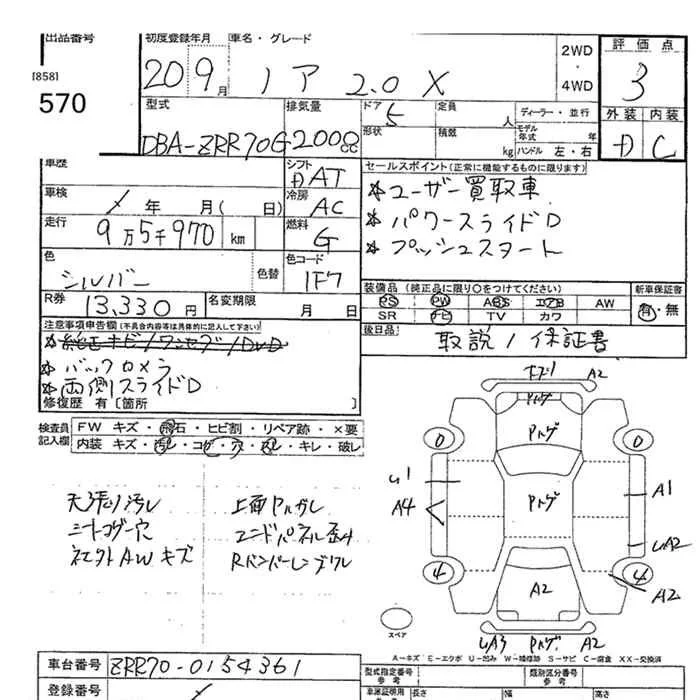 出品番号 初度登録年月 車名・グレード 2WD 評価点
[858]
570 20 9月 ノア 2.0 X 4WD 3
型式 排気量 ドア 5 定員 人 ディーラー・並行 外装 内装
DBA-ZRR70G 2000cc 形状 積載 kg モデル年式 年 D C
ハンドル 左・右
車歴 シフト DAT セールスポイント(正常に機能するものに限ります)
車検 / 年 月( 日) 冷房 AC *ユーザー買取車
走行 9万5千970 km 燃料 G *パワースライドD
*プッシュスタート
色 シルバー 色替 色コード 1F7
装備品(純正品に限り○をつけてください) 新車保証書
R券 13,330円 名変期限 月 日 PS PW ABS エアB AW 有・無
SR ナビ TV カワ
注意事項申告欄(不具合内容等は具体的に記入して下さい) 後日品 取説/保証書
*純正ナビ/ワンセグ/DVD
*バックカメラ
*両側スライドD
修復歴 有〔箇所 〕
検査員記入欄 FW キズ・飛石・ヒビ割・リペア跡・×要
内装 キズ・汚レ・コゲ・穴・凩レ・キレ・破レ
天張り汚レ 上面Pハガレ
シートコゲ穴 コンドパネル歪
ネエクトAWキズ Rバンパーレンズワレ
A2
Pハゲ
Pハゲ
Pハゲ
0 0
U1 A1
A4
UA2
4 4
A2 A2
スペア
UA3 Pハゲ A2
A-キズ E-エクボ U-凹み W-補修跡 S-サビ C-腐食 XX-交換済
車台番号 ZRR70-0154361 型式指定番号(参考) 類別区分番号(参考)
登録番号 車庫証明用(参考) 長さ 幅 高さ